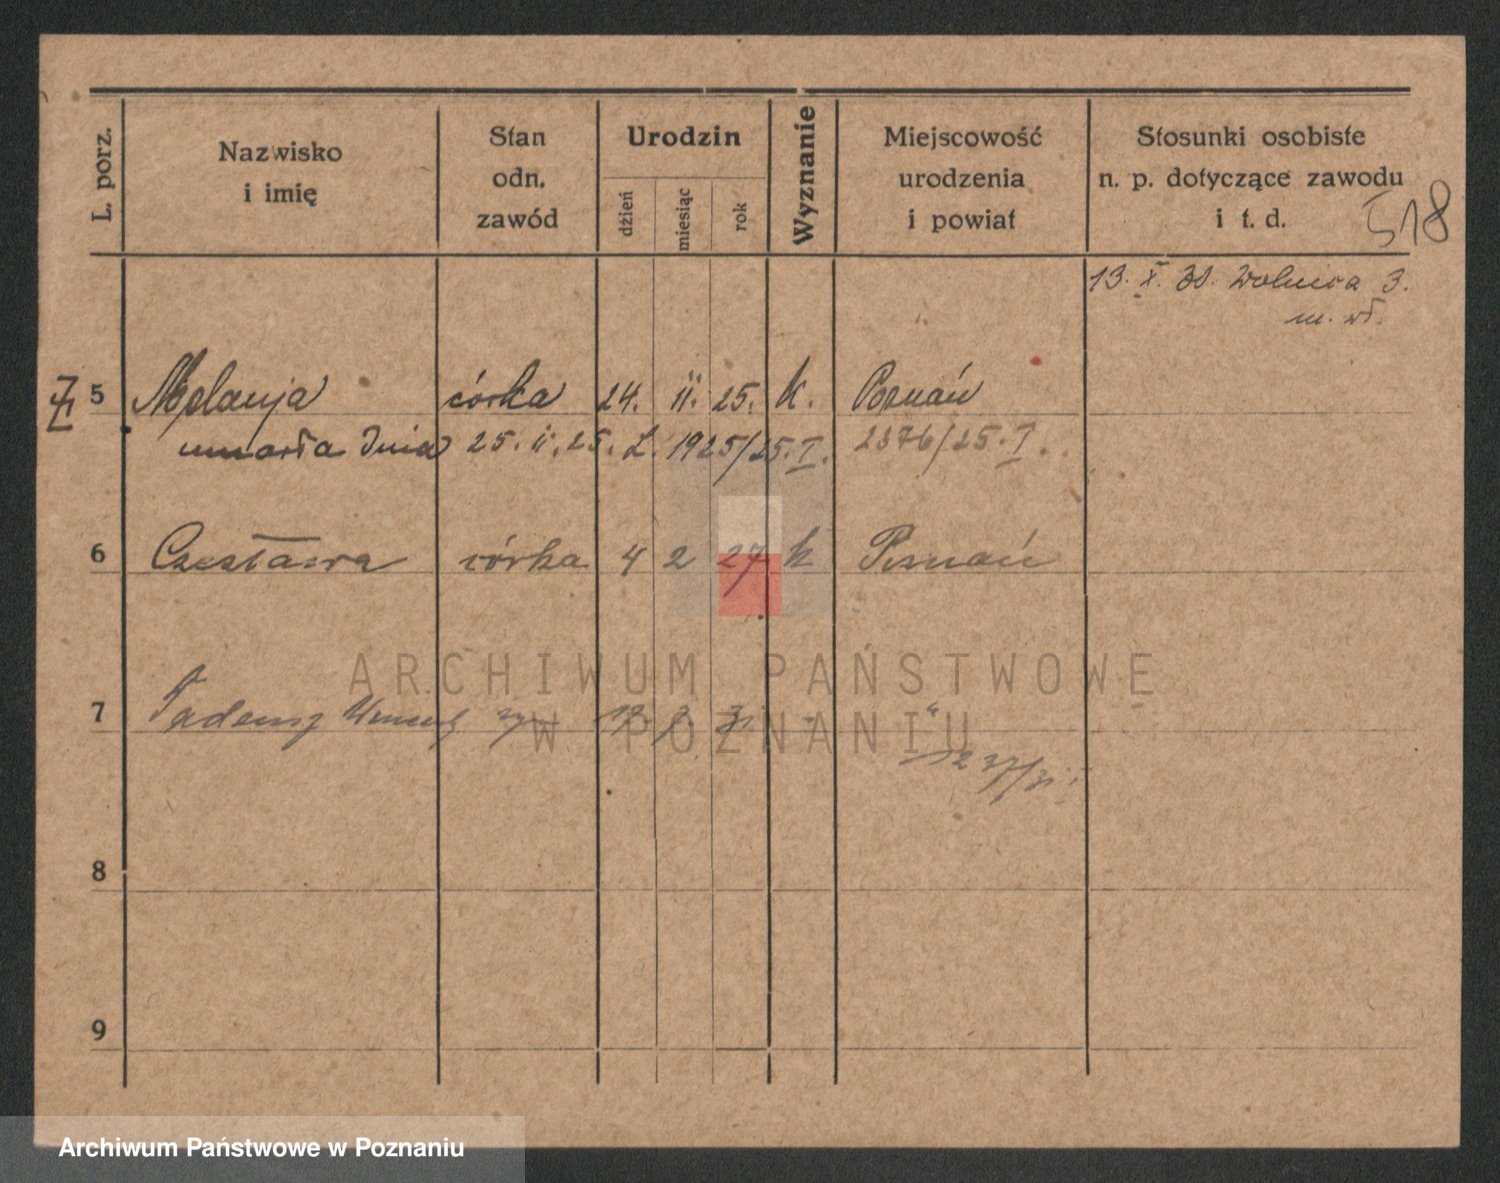 L. porz.
Nazwisko
i imię
Stan
odn.
zawód
Urodzin
dzień
miesiąc
rok
Wyznanie
Miejscowość
urodzenia
i powiat
Stosunki osobiste
n. p. dotyczące zawodu
i t. d.
518
13. X. 30. Wolnica 3.
m. wł.
5 Melanja córka 24. II. 25. k. Poznań
umarła dnia 25. II. 25. L. 1925/25. I. 2376/25. I.
6 Czesława córka 4 2 27 k Poznań
ARCHIWUM PAŃSTWOWE
7 Tadeusz 19. 3 31 - "
W POZNANIU
1237/31 I
8
9
Archiwum Państwowe w Poznaniu